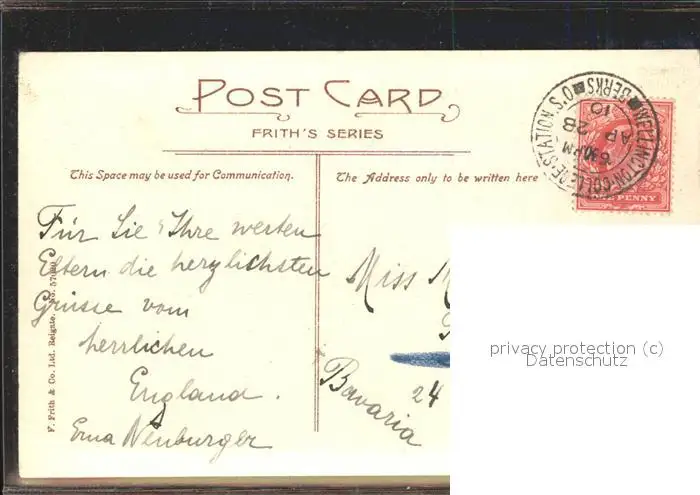 POST CARD
FRITH'S SERIES
This Space may be used for Communication.
The Address only to be written here
WELLINGTON-COLLEGE-STATION S.O. BERKS
6 30 PM
AP 28
10
ONE PENNY
Für Sie, Ihre werten
Eltern die herzlichsten
Grüsse vom
herrlichen
England.
Erna Neuburger
F. Frith & Co. Ltd. Reigate. No.
Miss
24
Bavaria
privacy protection (c)
Datenschutz